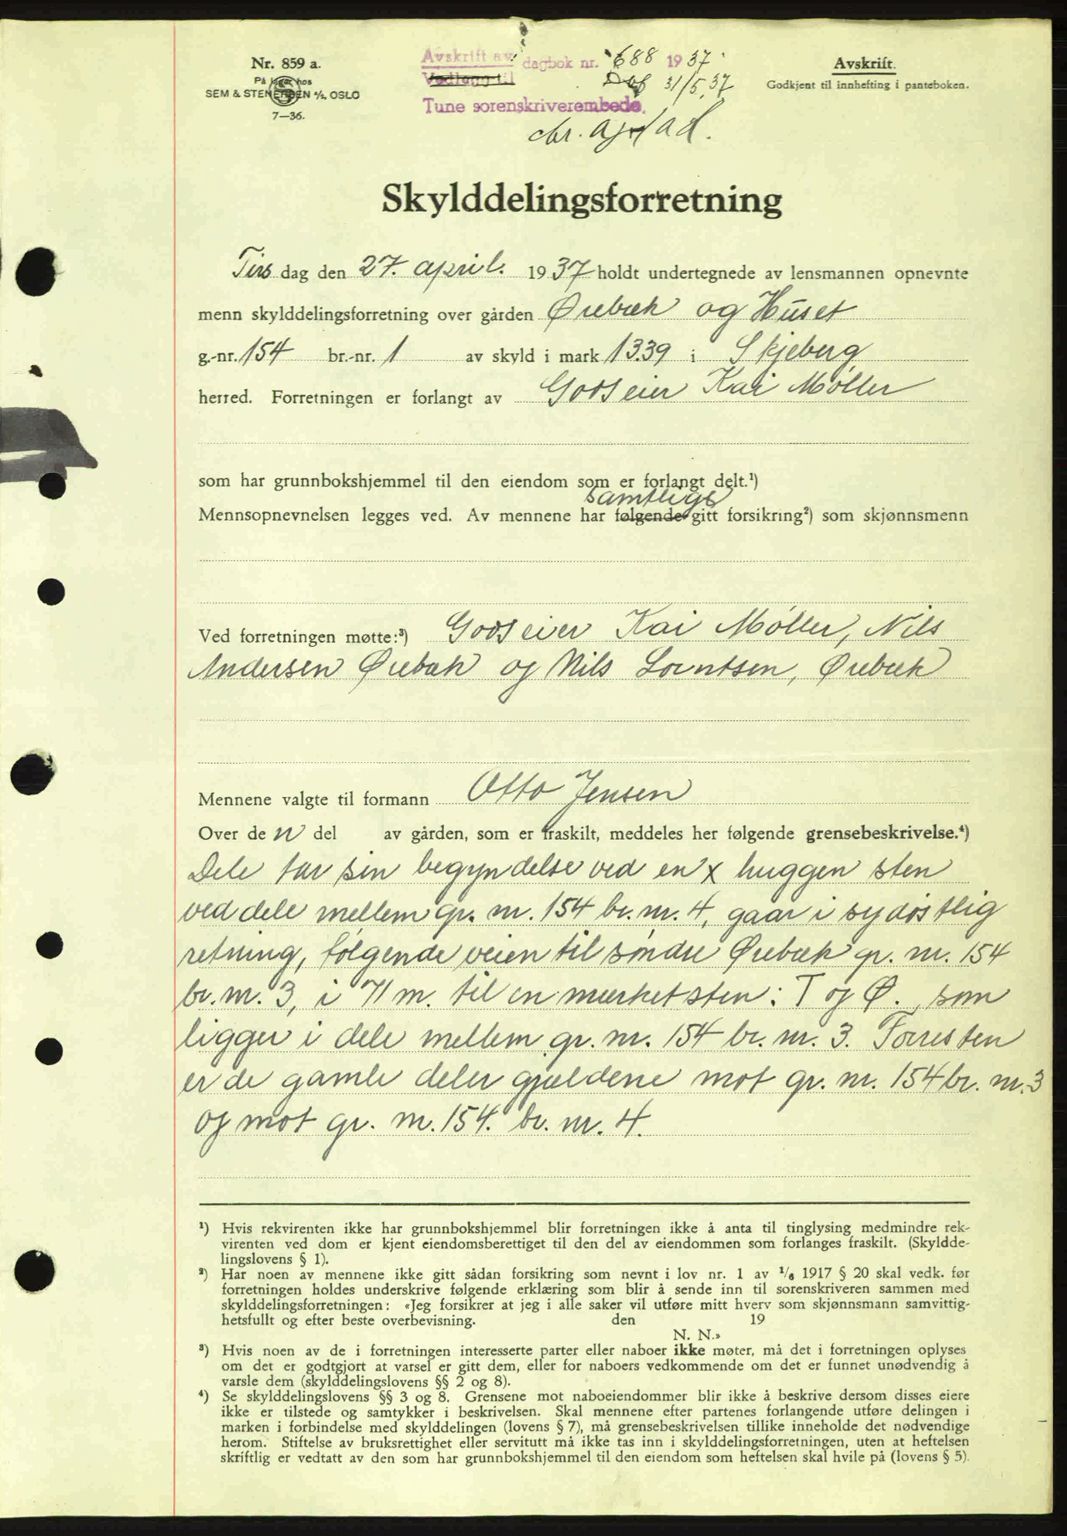 Nr. 859 a.
På lager hos
SEM & STENERSEN A/S, OSLO
7—36.
Avskrift av dagbok nr. 688 1937
Vedlegg til
31/5.37
Tune sorenskriverembede.
Avskrift.
Godkjent til innhefting i panteboken.
Skylddelingsforretning
Tirsdag den 27. april. 1937 holdt undertegnede av lensmannen opnevnte
menn skylddelingsforretning over gården Ørebæk og Huset
g.-nr. 154 br.-nr. 1 av skyld i mark 13.39 i Skjeberg
herred. Forretningen er forlangt av Godseier Kai Møller
som har grunnbokshjemmel til den eiendom som er forlangt delt.¹)
samtlige
Mennsopnevnelsen legges ved. Av mennene har følgende gitt forsikring²) som skjønnsmenn
Ved forretningen møtte:³) Godseier Kai Møller, Nils
Andersen Ørebæk og Nils Lorntsen, Ørebæk
Mennene valgte til formann Otto Jensen
Over den del av gården, som er fraskilt, meddeles her følgende grensebeskrivelse.⁴)
Dele tar sin begyndelse ved en x huggen sten
ved dele mellem gr. nr. 154 br. nr. 4, gaar i sydøstlig
retning, følgende veien til søndre Ørebæk gr. nr. 154
br. nr. 3, i 71 m. til en merket sten: T og Ø. som
ligger i dele mellem gr. nr. 154 br. nr. 3. Forresten
er de gamle deler gjeldene mot gr. nr. 154 br. nr. 3
og mot gr. nr. 154. br. nr. 4.
¹) Hvis rekvirenten ikke har grunnbokshjemmel blir forretningen ikke å anta til tinglysing medmindre rek-
virenten ved dom er kjent eiendomsberettiget til den del av eiendommen som forlanges fraskilt. (Skyldde-
lingslovens § 1).
²) Har noen av mennene ikke gitt sådan forsikring som nevnt i lov nr. 1 av 1/6 1917 § 20 skal vedk. før
forretningen holdes underskrive følgende erklæring som blir å sende inn til sorenskriveren sammen med
skylddelingsforretningen: «Jeg forsikrer at jeg i alle saker vil utføre mitt hverv som skjønnsmann samvittig-
hetsfullt og efter beste overbevisning. den 19
N. N.»
³) Hvis noen av de i forretningen interesserte parter eller naboer ikke møter, må det i forretningen oplyses
om det er godtgjort at varsel er gitt dem, eller for naboers vedkommende om det er funnet unødvendig å
varsle dem (skylddelingslovens §§ 2 og 8).
⁴) Se skylddelingslovens §§ 3 og 8. Grensene mot naboeiendommer blir ikke å beskrive dersom disses eiere
ikke er tilstede og samtykker i beskrivelsen. Skal mennene efter partenes forlangende utføre delingen i
marken i forbindelse med skylddelingen (lovens § 7), må grensebeskrivelsen tillike inneholde det nødvendige
herom. Stiftelse av bruksrettighet eller servitutt må ikke tas inn i skylddelingsforretningen, uten at heftelsen
skriftlig er vedtatt av den som har grunnbokshjemmel til den eiendom som heftelsen skal hvile på (lovens § 5).